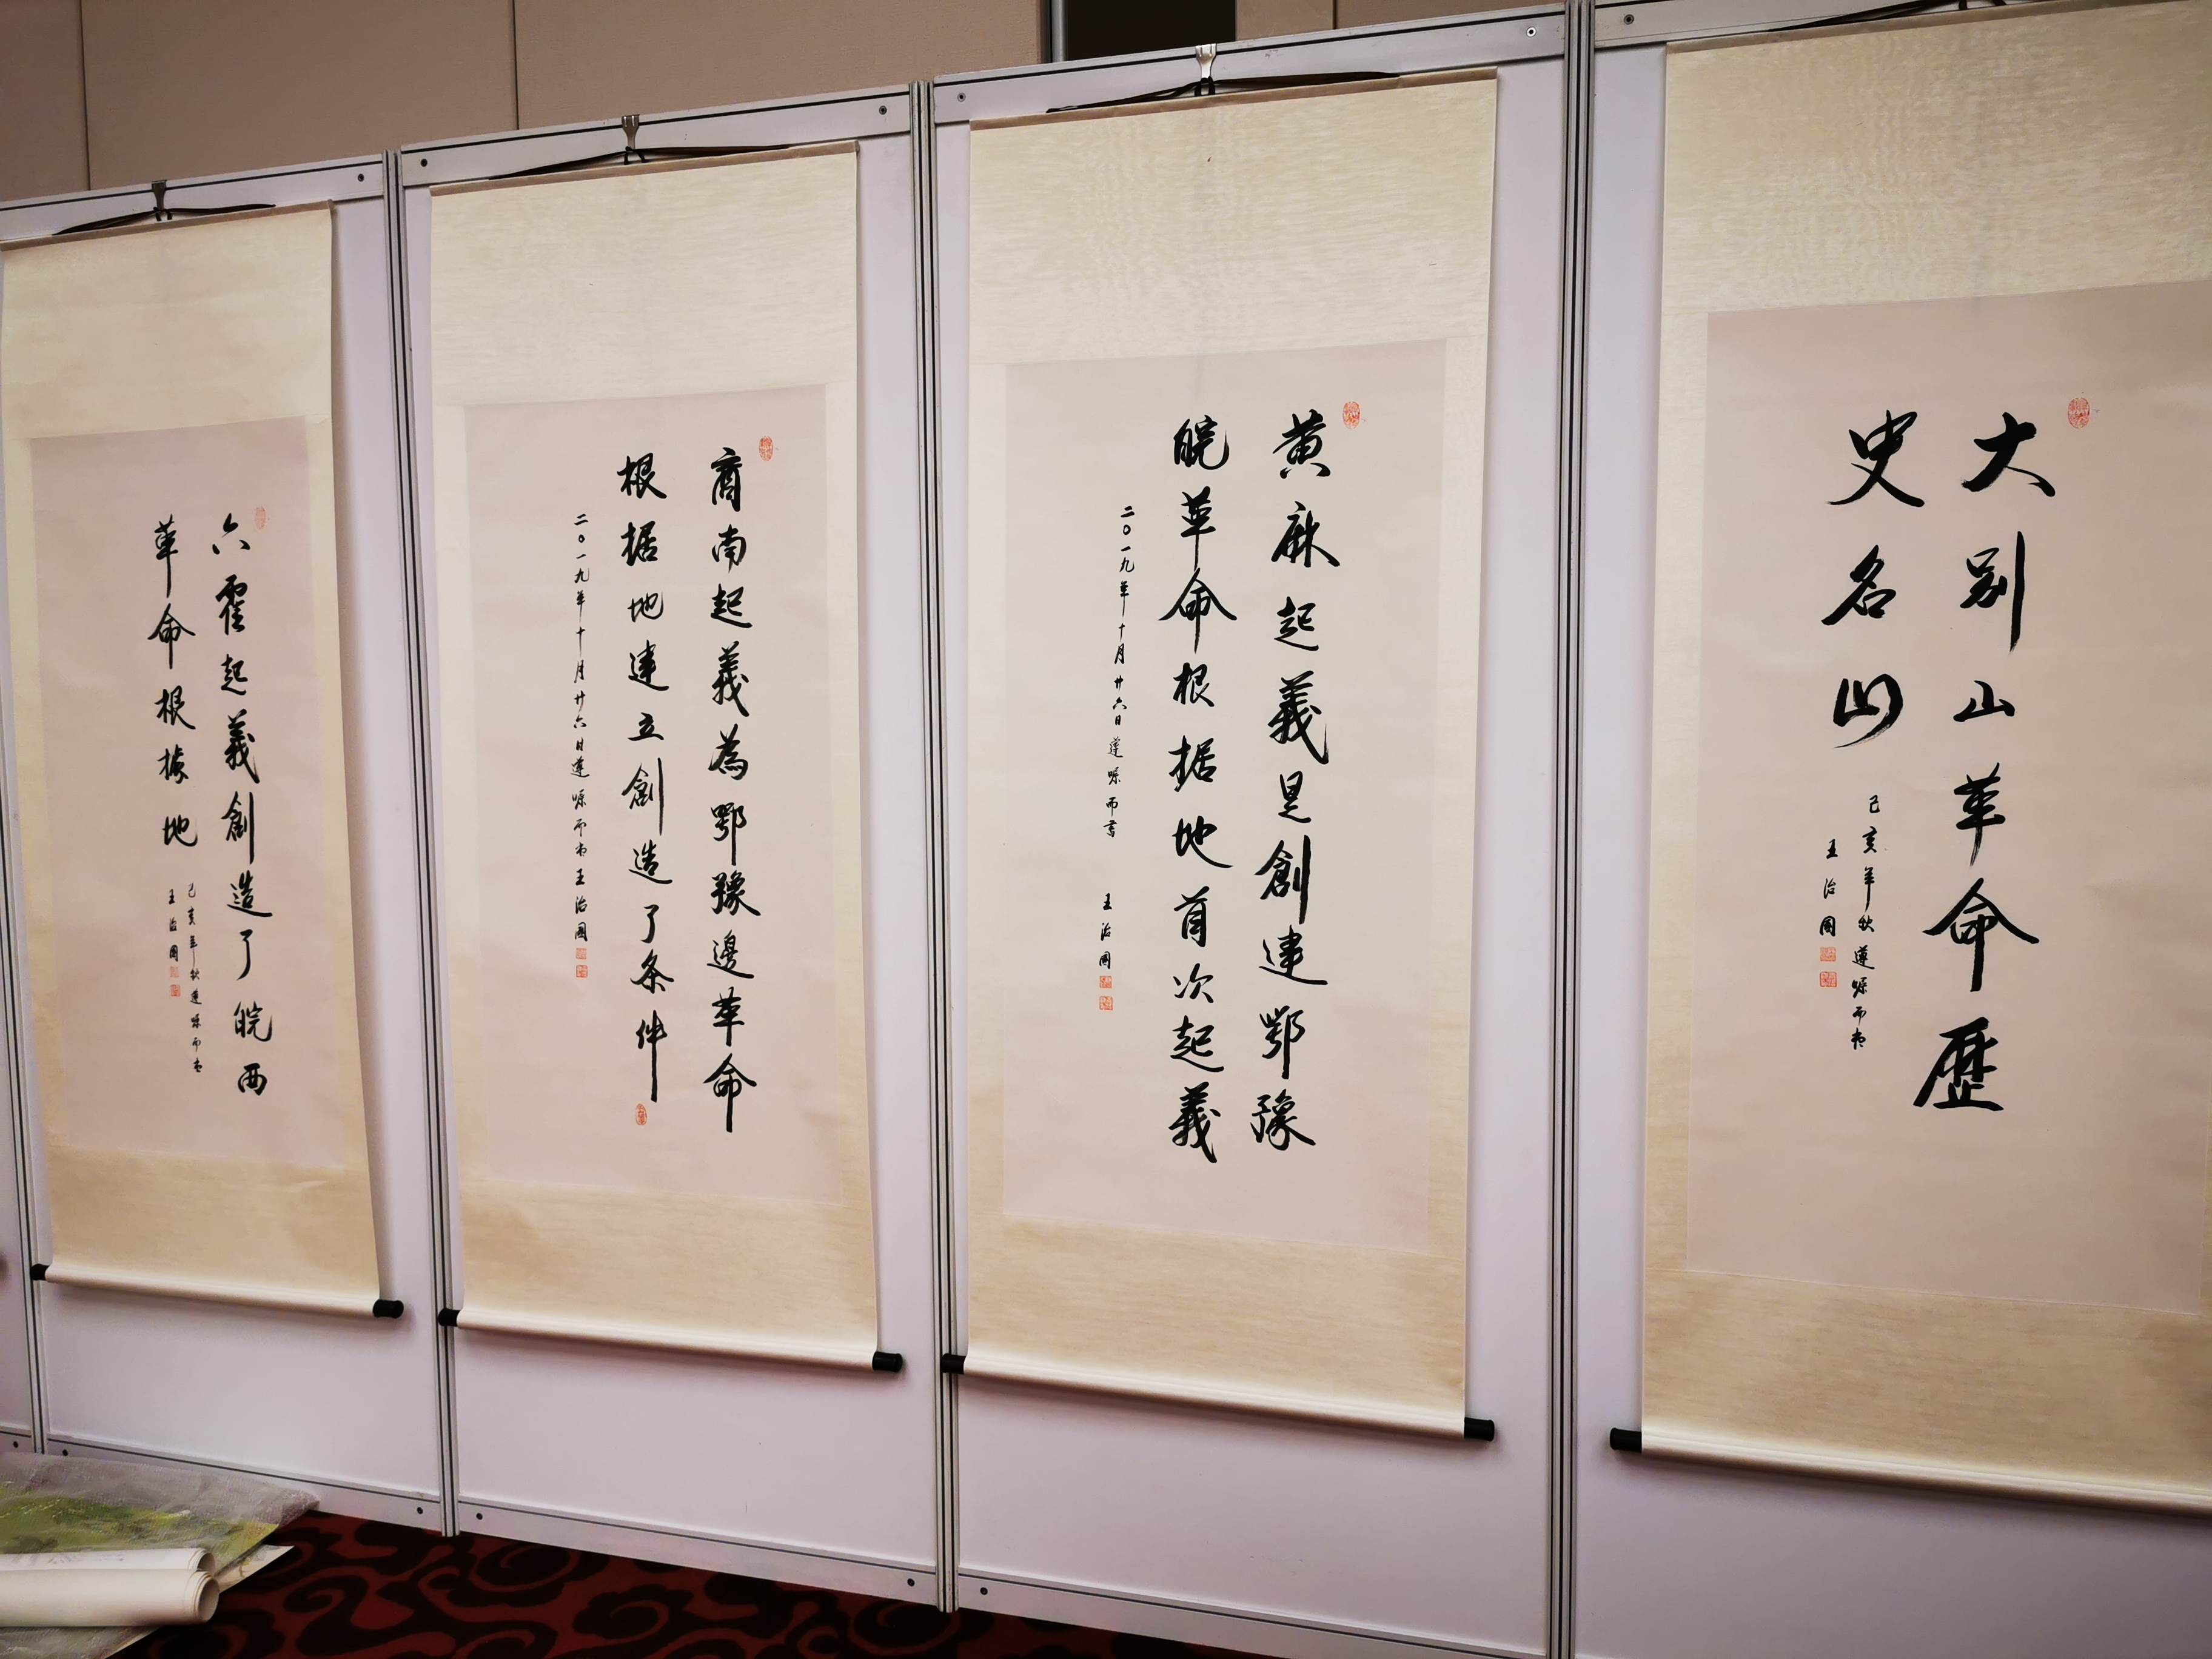 大别山革命歷
史名山
己亥年秋遵嘱而书
王治國
黄麻起義是創建鄂豫
皖革命根据地首次起義
二〇一九年十月廿六日遵嘱而書
王治國
商南起義為鄂豫邊革命
根据地建立創造了条件
二〇一九年十月廿六日遵嘱而书王治國
六霍起義創造了皖西
革命根據地
己亥年秋遵嘱而书
王治國